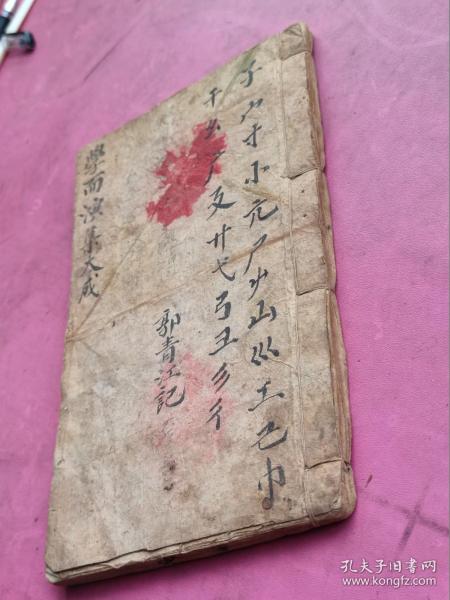 子宀寸小尢尸屮山巛工己巾
干幺广廴廾弋弓彐彡彳
郭青江記
學而演集大成
孔夫子旧书网
www.kongfz.com